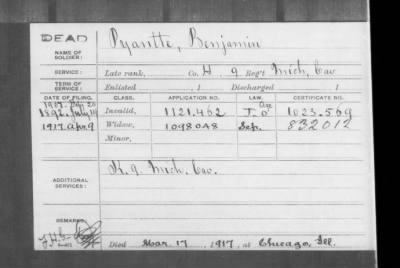 DEAD
NAME OF SOLDIER: Pyantte, Benjamin
SERVICE: Late rank, Co. H, 9 Reg't Mich. Cav
TERM OF SERVICE: Enlisted , 1 Discharged 1
DATE OF FILING. CLASS. APPLICATION NO. LAW. CERTIFICATE NO.
Age
1892. July Invalid, 1121.462 1023.569
1917 Apr 9 Widow, 1098048 Sep. 832012
Minor,
ADDITIONAL SERVICES: K. 9. Mich. Cav.
REMARKS:
Died Mar. 17 1917, at Chicago, Ill.